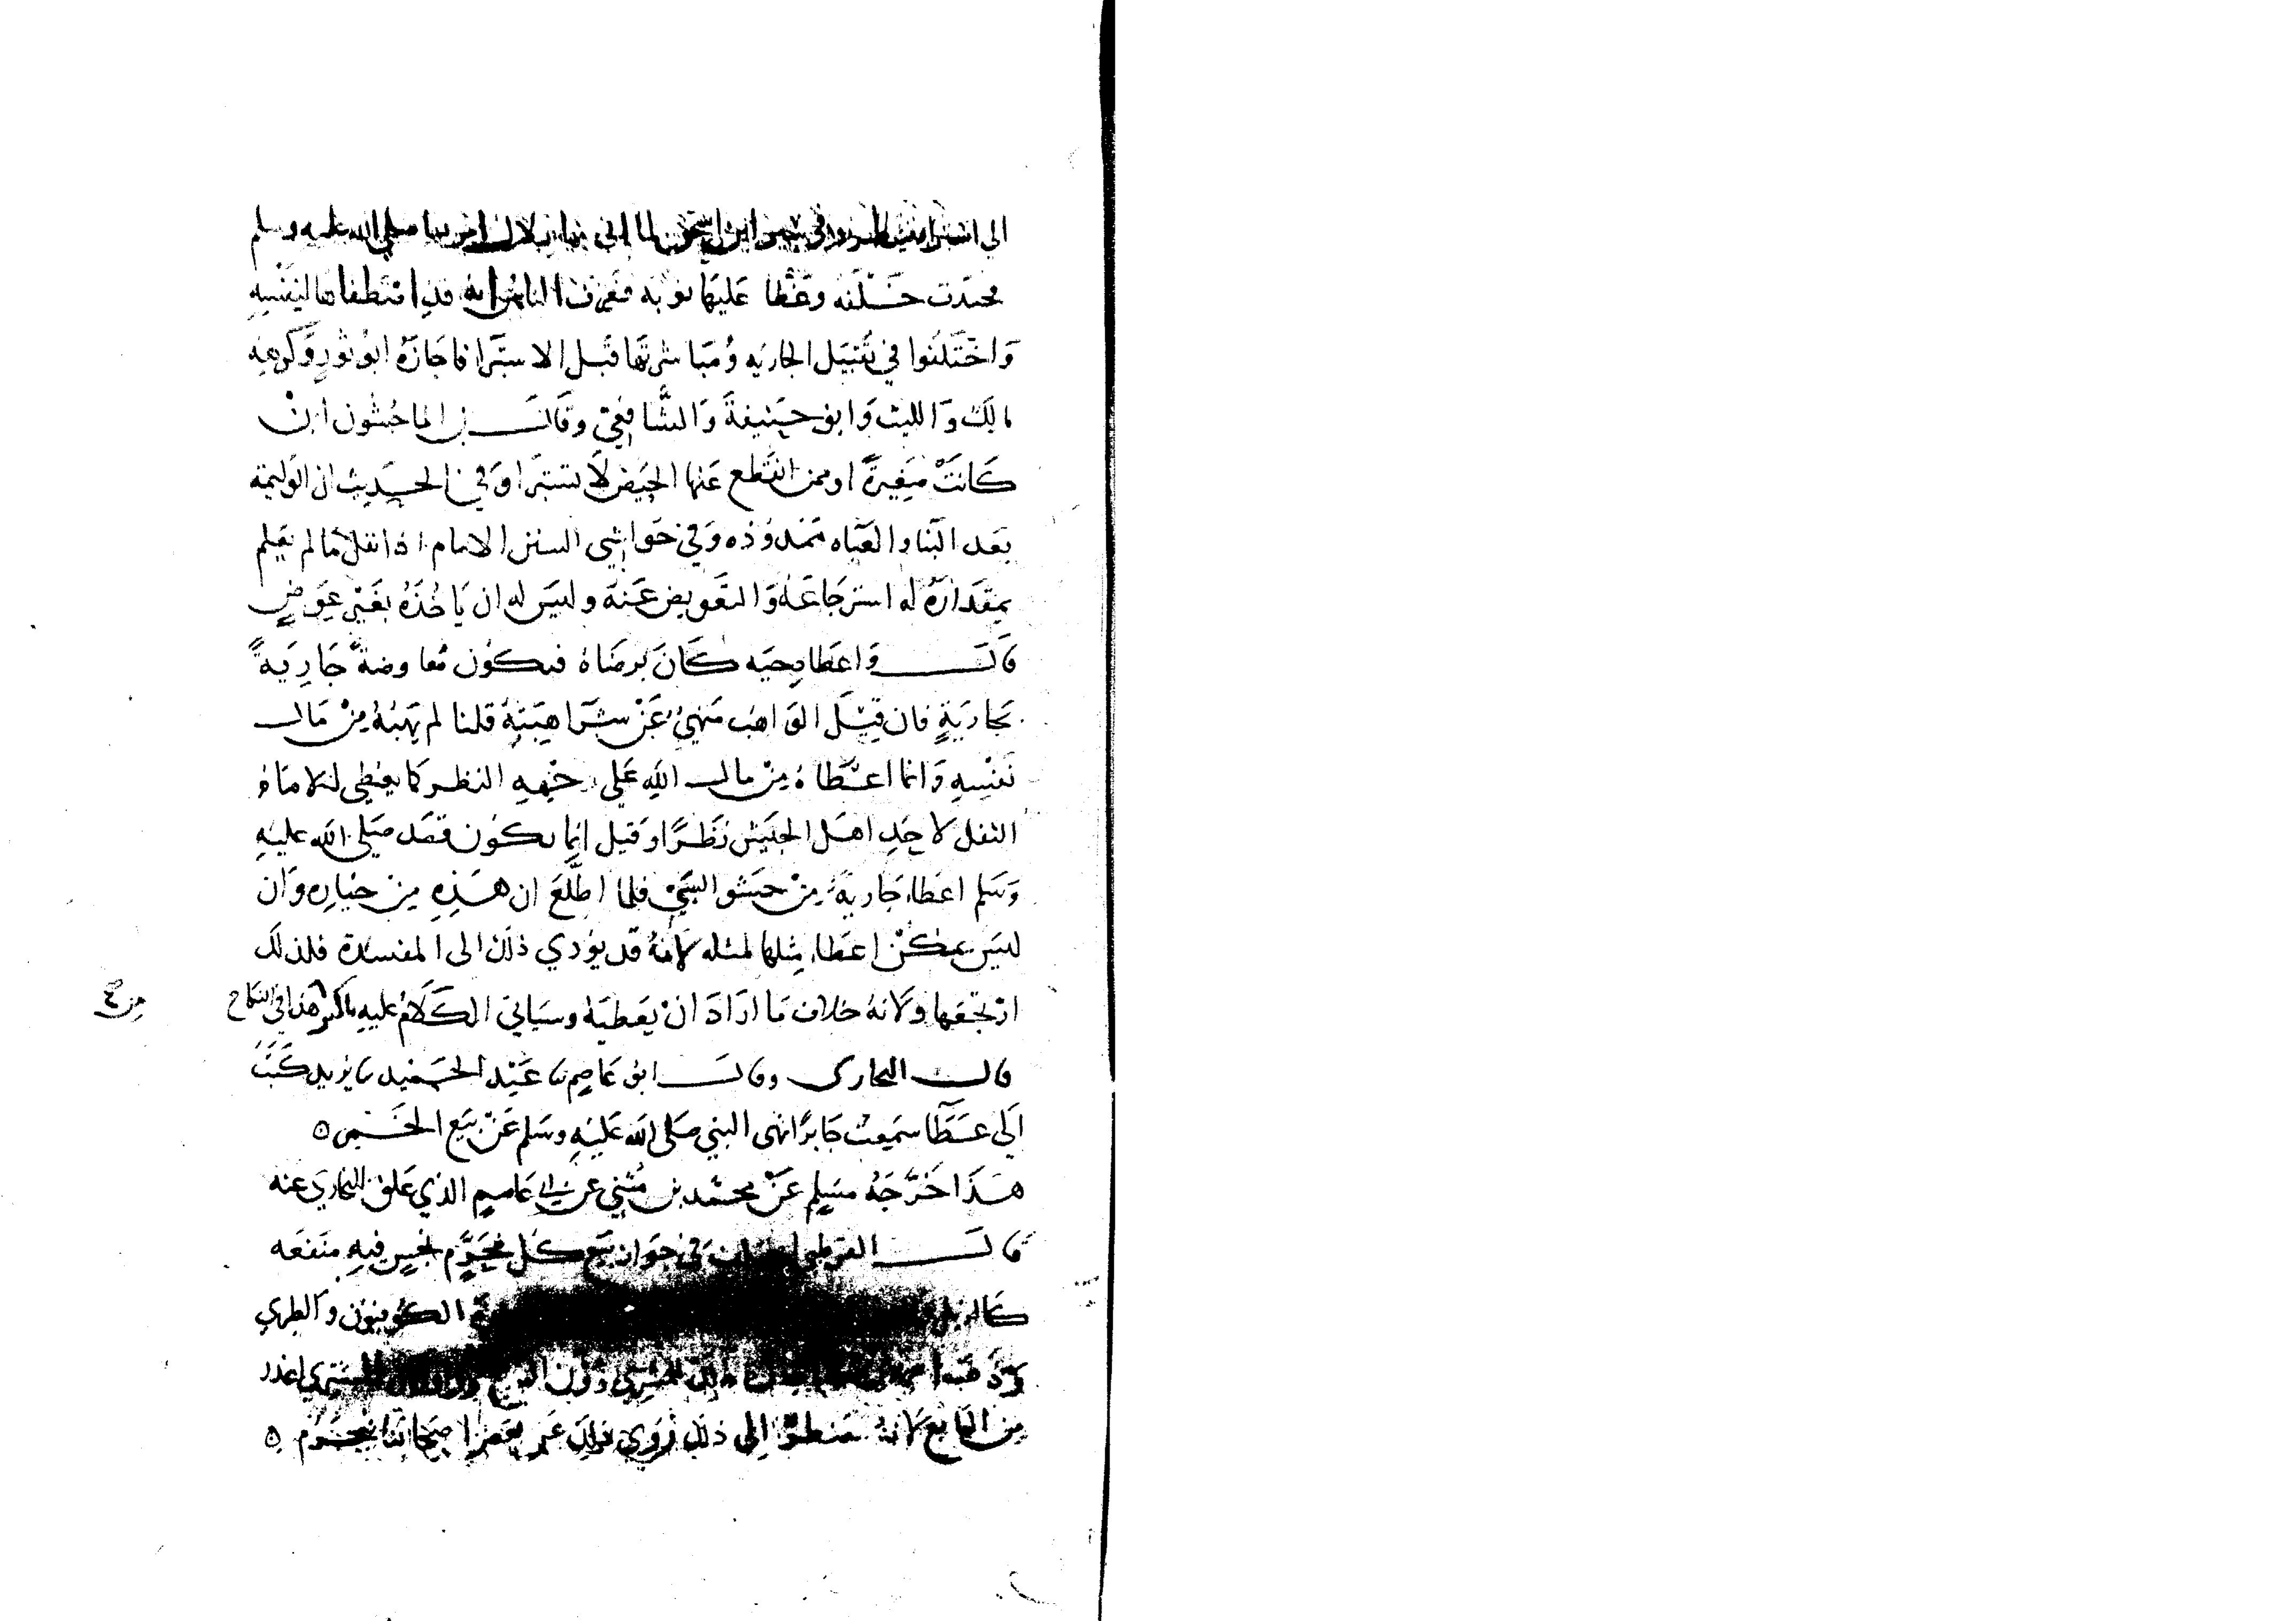 الي وفي ابن اسحق لما اتي بها بلال امر بها صلي الله عليه وسلم
محيزت خلفه وغطا عليها ثوبه فعرف الناس انه قد اصطفاها لنفسه
وَاختَلَفوا في تقبيل الجاريه ومُبَاشرتها قبل الاستبَرا فاجَازَهُ ابو ثورٍ وكرهه
مالك وَالليث وَابو حنيفةَ وَالشَّافعي وقالــ بن الماجُشون ان
كانَتْ صَغيرةً او ممن انقطع عَنها الحيَض لا تستبَرا وَفي الحَديث ان الوَليمة
بَعد البنا والعبَاه ممَدوده وَفي حَواشي السنن الامام اذا نفل ما لم يَعلم
بمِقدَارهُ له استرجَاعَهُ وَالتعَويض عَنهُ وليَس له ان يَاخُذهُ بغَير عِوَضٍ
قالــ وَاعطَا دِحيَه كانَ برضَاهُ فيكون مُعاوضةً جَارِيَةً
بجَاريَةٍ فان قِيلَ الوَاهب مَنهيٌ عَنْ شرَا هِبَتِهِ قلنا لم يَهبْهُ مِنْ مَالــ
نَفْسِهِ وَانما اعطَاهُ مِنْ مالــ الله عَلى جهِهِ النظر كما يعُطي الامَامُ
النفل لاحَدِ اهل الجيَش نَظرًا وقيل انما يكوُن قصَد صَلى الله عليهِ
وَسَلم اعطَاء جَاريةً مِنْ حَشو السَّبي فلما اطّلعَ ان هَذِهِ من خيَارِه وَان
ليسَ يمكنْ اعطَاء مِثلها لمثله لانهُ قد يؤدي ذلك الى المفسدة فلذلك
ارْتجَعَها وَلانهُ خلاف مَا ارَادَ انْ يعَطيَهُ وسيَاتي الكَلَام عليهِ باكثر مِن هَذا في النكاح
قالــ البخاري وقالــ ابو عَاصِمٍ ثنا عَبْد الحَميد ثنا يزيد كَتَبَ
الَي عَطَا سَمِعت جَابِرًا نهى النبي صَلى الله عَليهِ وسَلم عَنْ بَيَع الخَــمر ٥
هَذا خَرَّجَهُ مسَلِم عَنْ محمَّد بن مثني عن ابي عَاصِمٍ الذي عَلق البخاري عنه
قالــ القرطبي في جوَاز بَيع كل محَرَّم نجسٍ فيهِ منفَعَه
كالزبل الكوُفيوُن وَالطبري
وَذَهَبَ المشتري دوُن البَايع المشتري اعذر
مِن البَايع لانهُ مضَطر اِلى ذلك رُوي ذلك عَن بَعض اصحَابنَا